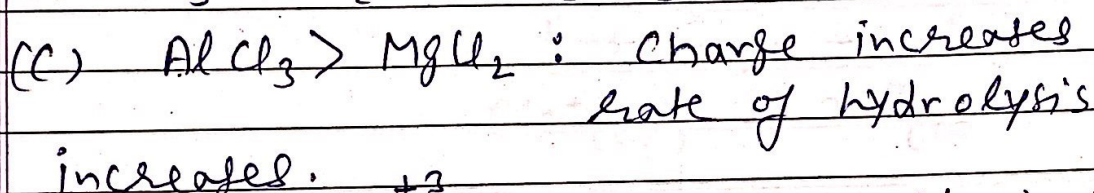 (C) AlCl₃ > MgCl₂ : Charge increases
rate of hydrolysis
increases. +3